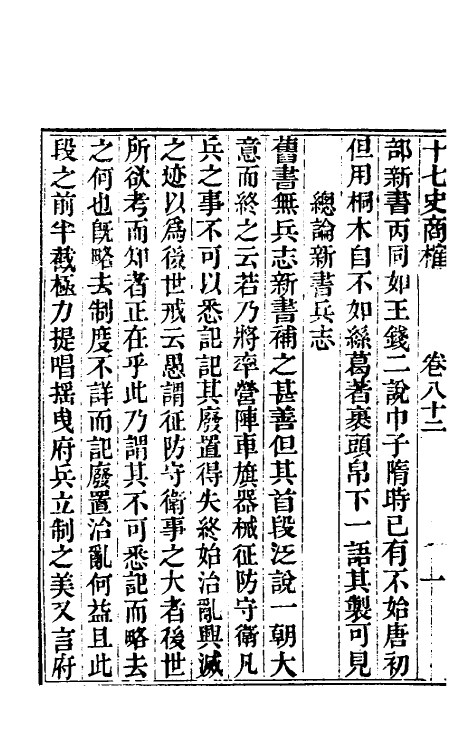 十七史商榷 卷八十二 一
部新書丙同如王錢二說巾子隋時已有不始唐初
但用桐木自不如絲葛著裹頭帛下一語其製可見
總論新書兵志
舊書無兵志新書補之甚善但其首段泛說一朝大
意而終之云若乃將率營陣車旗器械征防守衛凡
兵之事不可以悉記記其廢置得失終始治亂興滅
之迹以爲後世戒云愚謂征防守衛事之大者後世
所欲考而知者正在乎此乃謂其不可悉記而略去
之何也旣略去制度不詳而記廢置治亂何益且此
段之前半截極力提唱搖曳府兵立制之美又言府